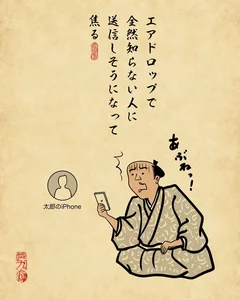 エアドロップで
全然知らない人に
送信しそうになって
焦る
あぶねっ!
太郎のiPhone